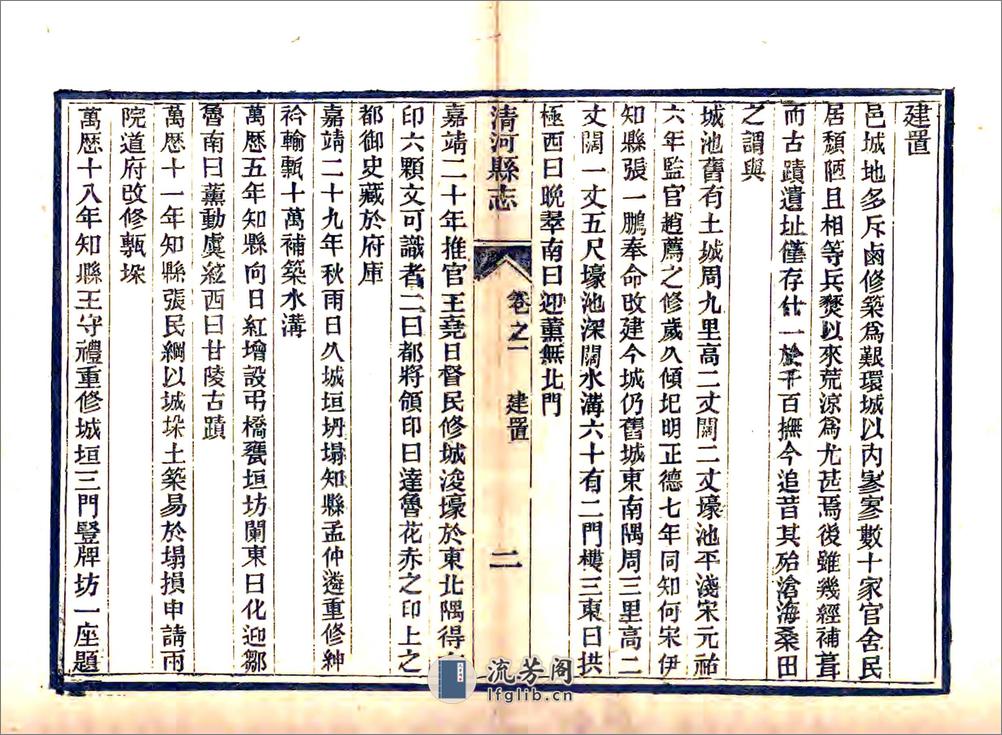 建置
邑城地多斥鹵修築爲艱環城以內寥寥數十家官舍民
居頹陋且相等兵燹以來荒涼爲尤甚焉後雖幾經補葺
而古蹟遺址僅存什一於千百撫今追昔其殆滄海桑田
之謂與
城池舊有土城周九里高二丈闊二丈壕池平淺宋元祐
六年監官趙薦之修歲久傾圮明正德七年同知何宋伊
知縣張一鵬奉命改建今城仍舊城東南隅周三里高二
丈闊一丈五尺壕池深闊水溝六十有二門樓三東曰拱
極西曰晩翠南曰迎薰無北門
清河縣志
卷之一
建置
二
嘉靖二十年推官王堯日督民修城浚壕於東北隅得
印六顆文可識者二曰都將領印曰達魯花赤之印上之
都御史藏於府庫
嘉靖二十九年秋雨日久城垣坍塌知縣孟仲遴重修紳
衿輸甎十萬補築水溝
萬歷五年知縣向日紅增設弔橋甕垣坊闌東曰化迎鄒
魯南曰薰動虞絃西曰甘陵古蹟
萬歷十一年知縣張民綱以城垜土築易於塌損申請兩
院道府改修甎垜
萬歷十八年知縣王守禮重修城垣三門豎牌坊一座題
流芳阁
lfglib.cn